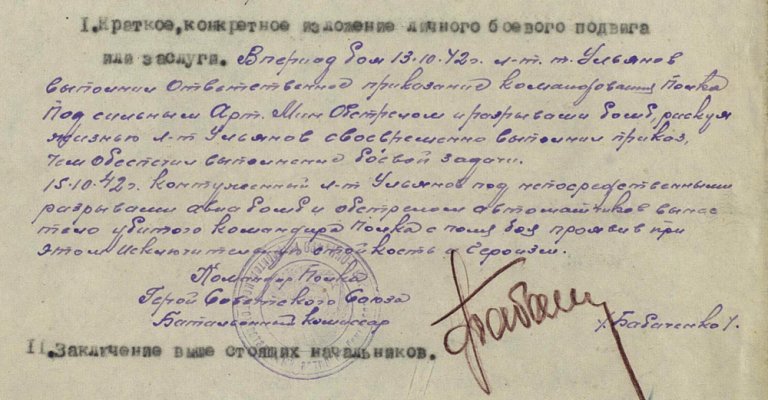 I.Краткое,конкретное изложение личного боевого подвига
или заслуги. В период боя 13.10.42г. л-т. т. Ульянов
выполнил ответственное приказание командования Полка
Под сильным Арт. Мин Обстрелом и разрывами бомб, рискуя
жизнью л-т Ульянов своевременно выполнил приказ,
чем обеспечил выполнение боевой задачи.
15.10.42г. контуженный л-т Ульянов под непосредственными
разрывами авиабомб и обстрелом автоматчиков вынес
тело убитого командира Полка с поля боя проявив при
этом исключительную стойкость и героизм.
Командир Полка
Герой Советского Союза
Батальонный комиссар
/Бабаченко/.
II.Заключение выше стоящих начальников.